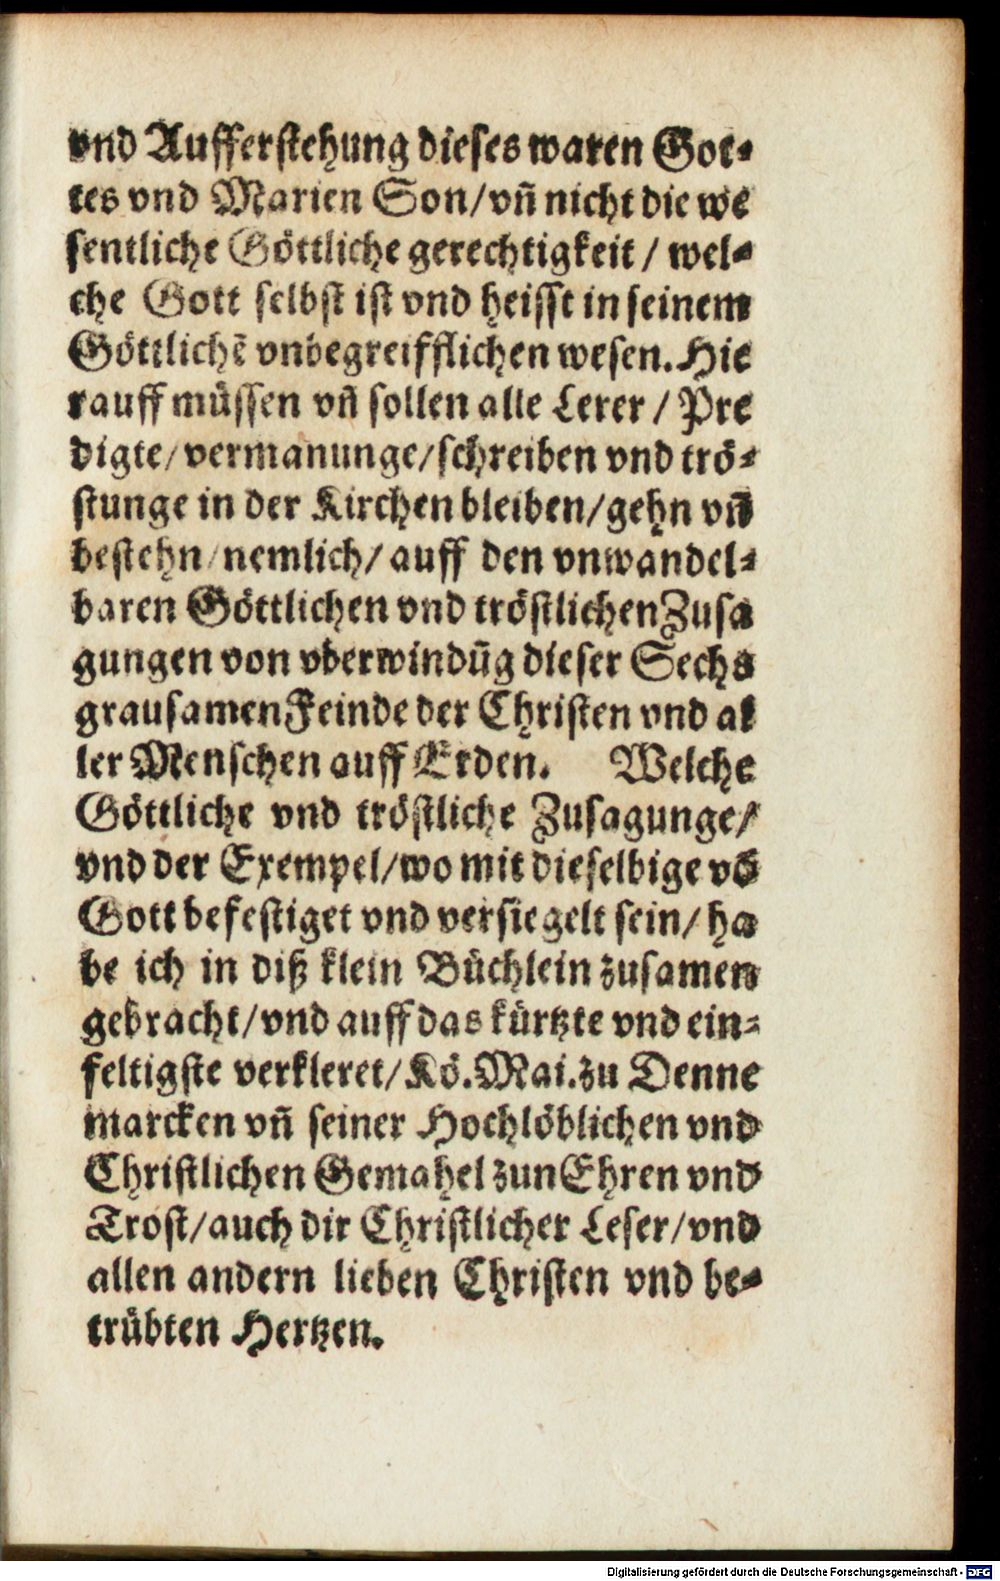 vnd Aufferstehung dieses waren Got-
tes vnd Marien Son/vn̄ nicht die we
sentliche Göttliche gerechtigkeit / wel-
che Gott selbst ist vnd heisst in seinem
Göttlichē vnbegreifflichen wesen. Hie
rauff müssen vn̄ sollen alle Lerer / Pre
digte/vermanunge/schreiben vnd trö-
stunge in der Kirchen bleiben/gehn vn̄
bestehn/nemlich/auff den vnwandel-
baren Göttlichen vnd tröstlichen Zusa
gungen von vberwindūg dieser Sechs
grausamen Feinde der Christen vnd al
ler Menschen auff Erden. Welche
Göttliche vnd tröstliche Zusagunge/
vnd der Exempel/wo mit dieselbige vō
Gott befestiget vnd versiegelt sein/ha
be ich in diß klein Büchlein zusamen
gebracht/vnd auff das kürtzte vnd ein-
feltigste verkleret/Kö. Mai. zu Denne
marcken vn̄ seiner Hochlöblichen vnd
Christlichen Gemahel zun Ehren vnd
Trost/auch dir Christlicher Leser/vnd
allen andern lieben Christen vnd be-
trübten Hertzen.
Digitalisierung gefördert durch die Deutsche Forschungsgemeinschaft - DFG